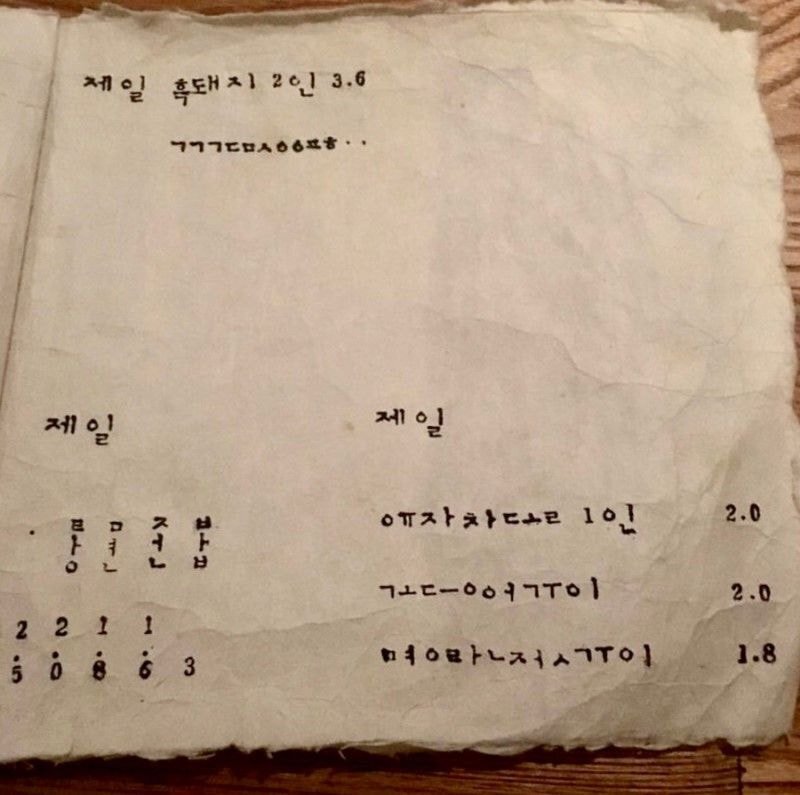 제일 흑돼지 2인 3.6
제일
탕 면 전 밥
2 2 1 1
. . . .
5 0 8 6 3
제일
ㅇㅠㅈㅏㅊㅏㄷㅗㄹ 1인 2.0
ㄱㅗㄷㅡㅇㅇㅓㄱㅜㅇㅣ 2.0
ㅁㅕㅇㄹㅏㄴㅈㅓㅅㄱㅜㅇㅣ 1.8